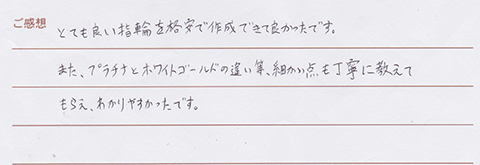 ご感想
とても良い指輪を格安で作成できて良かったです。
また、プラチナとホワイトゴールドの違い等、細かい点も丁寧に教えて
もらえ、わかりやすかったです。